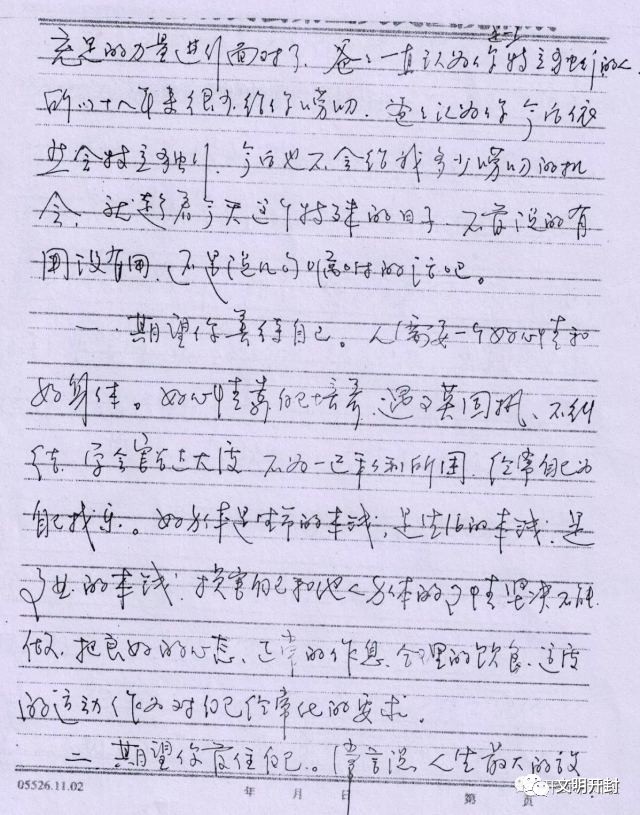 充足的力量进行面对了。爸爸一直认为你是一个特立独行的人
所以十八年来很少给你唠叨。爸爸认为你今后依
然会特立独行,今后也不会给我多少唠叨的机
会,就趁着今天这个特殊的日子,不管说的有
用没有用,还是说几句嘱咐的话吧。
一、期望你善待自己。人需要一个好心情和
好身体。好心情靠自己培养,遇又莫固执、不纠
结,学会豁达大度,不为一己私利所困,经常自己为
自己找乐。好身体是生命的本钱,是生活的本钱,是
事业的本钱,损害自己和他人身体的事情坚决不能
做,把良好的心态、正常的作息、合理的饮食、适度
的运动作为对自己经常化的要求。
二、期望你管住自己。常言说,人生最大的敌
05526.11.02 年 月 日 第 页
文明开封